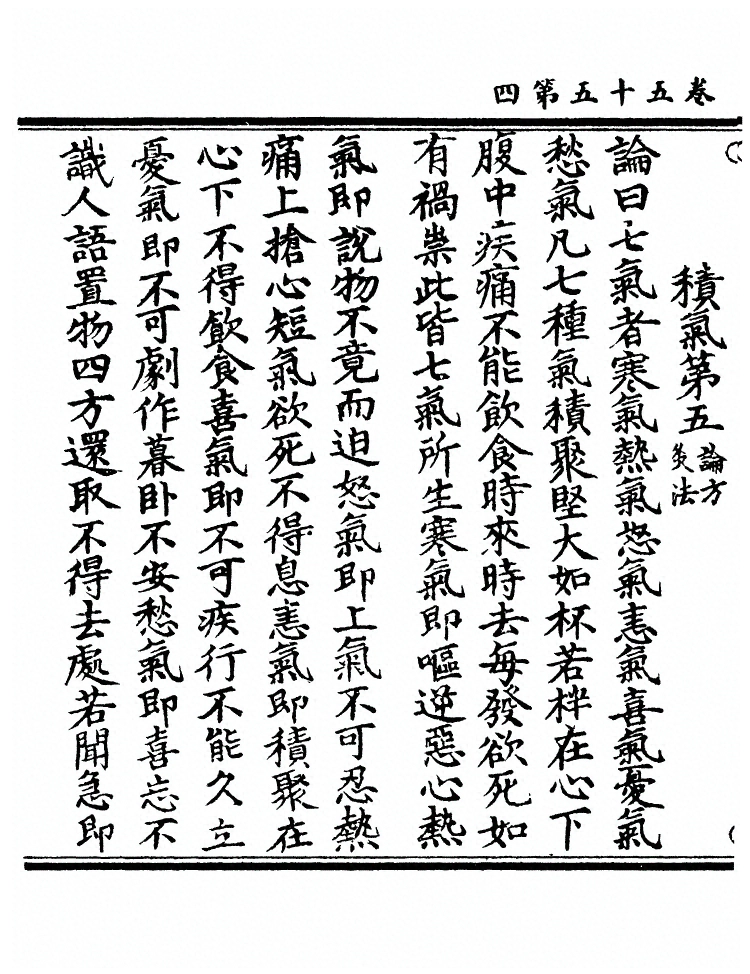 卷五十五第四
積氣第五 論方 灸法
論曰七氣者寒氣熱氣怒氣恚氣喜氣憂氣
愁氣凡七種氣積聚堅大如杯若柈在心下
腹中疾痛不能飲食時來時去每發欲死如
有禍祟此皆七氣所生寒氣即嘔逆惡心熱
氣即說物不竟而迫怒氣即上氣不可忍熱
痛上搶心短氣欲死不得息恚氣即積聚在
心下不得飲食喜氣即不可疾行不能久立
憂氣即不可劇作暮卧不安愁氣即喜忘不
識人語置物四方還取不得去處若聞急即